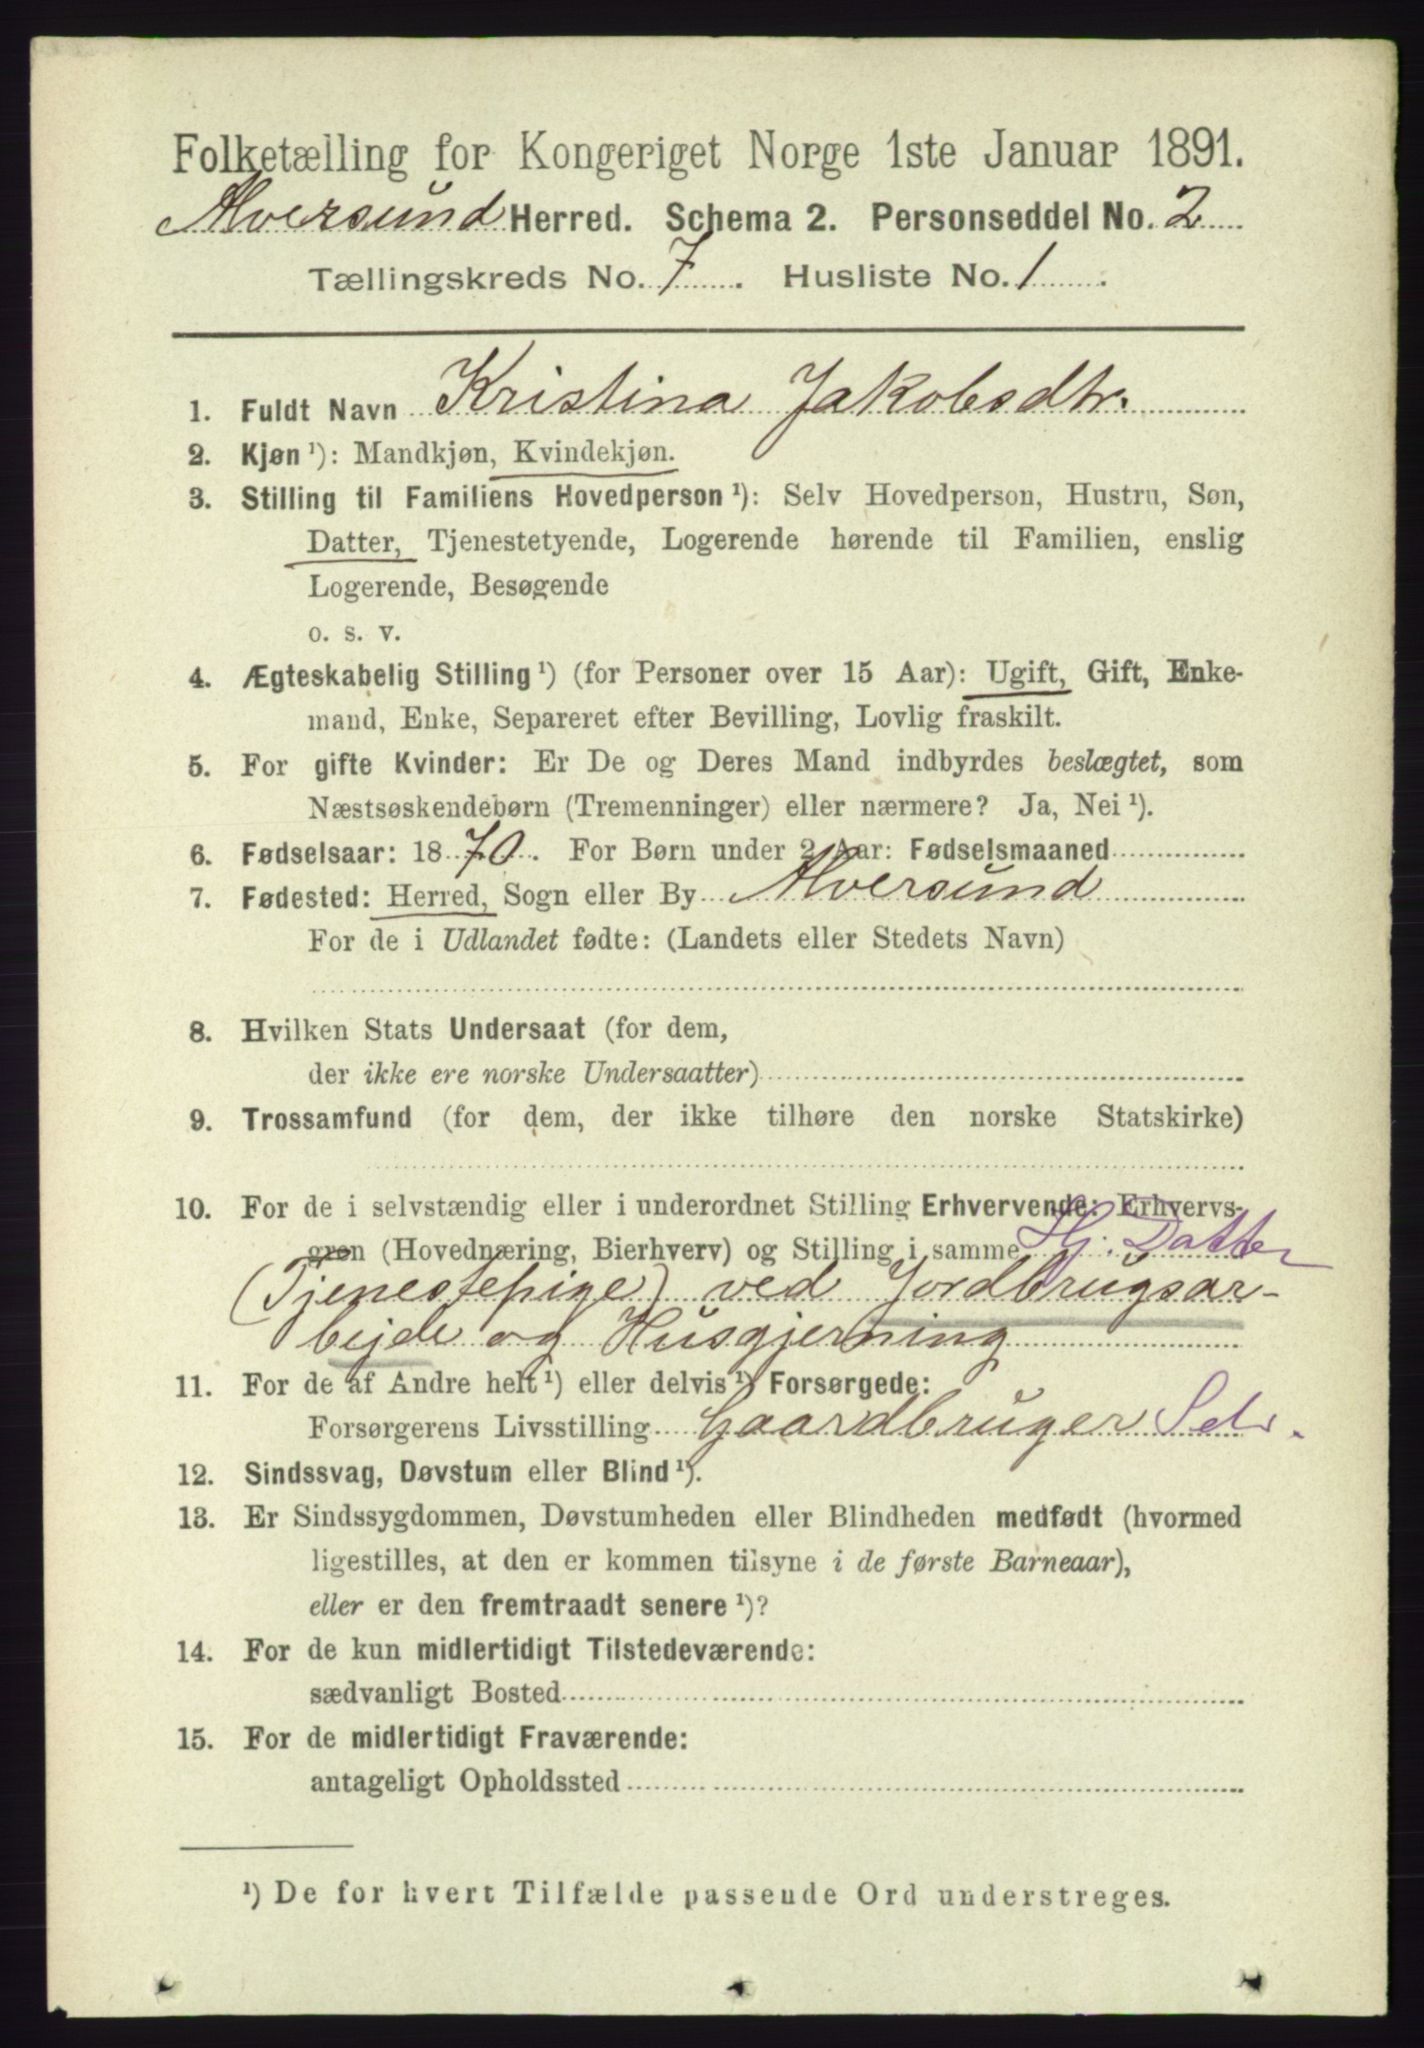 Folketælling for Kongeriget Norge 1ste Januar 1891.
Alversund Herred. Schema 2. Personseddel No. 2
Tællingskreds No. 7. Husliste No. 1.
1. Fuldt Navn Kristina Jakobsdtr.
2. Kjøn ¹): Mandkjøn, Kvindekjøn.
3. Stilling til Familiens Hovedperson ¹): Selv Hovedperson, Hustru, Søn,
Datter, Tjenestetyende, Logerende hørende til Familien, enslig
Logerende, Besøgende
o. s. v.
4. Ægteskabelig Stilling ¹) (for Personer over 15 Aar): Ugift, Gift, Enke-
mand, Enke, Separeret efter Bevilling, Lovlig fraskilt.
5. For gifte Kvinder: Er De og Deres Mand indbyrdes beslægtet, som
Næstsøskendebørn (Tremenninger) eller nærmere? Ja, Nei ¹).
6. Fødselsaar: 1870. For Børn under 2 Aar: Fødselsmaaned
7. Fødested: Herred, Sogn eller By Alversund
For de i Udlandet fødte: (Landets eller Stedets Navn)
8. Hvilken Stats Undersaat (for dem,
der ikke ere norske Undersaatter)
9. Trossamfund (for dem, der ikke tilhøre den norske Statskirke)
10. For de i selvstændig eller i underordnet Stilling Erhvervende: Erhvervs-
gren (Hovednæring, Bierhverv) og Stilling i samme Hj. Datter
(Tjenestepige) ved Jordbrugsar-
bejde og Husgjerning
11. For de af Andre helt ¹) eller delvis ¹) Forsørgede:
Forsørgerens Livsstilling Gaardbruger Selv.
12. Sindssvag, Døvstum eller Blind ¹).
13. Er Sindssygdommen, Døvstumheden eller Blindheden medfødt (hvormed
ligestilles, at den er kommen tilsyne i de første Barneaar),
eller er den fremtraadt senere ¹)?
14. For de kun midlertidigt Tilstedeværende:
sædvanligt Bosted
15. For de midlertidigt Fraværende:
antageligt Opholdssted
¹) De for hvert Tilfælde passende Ord understreges.